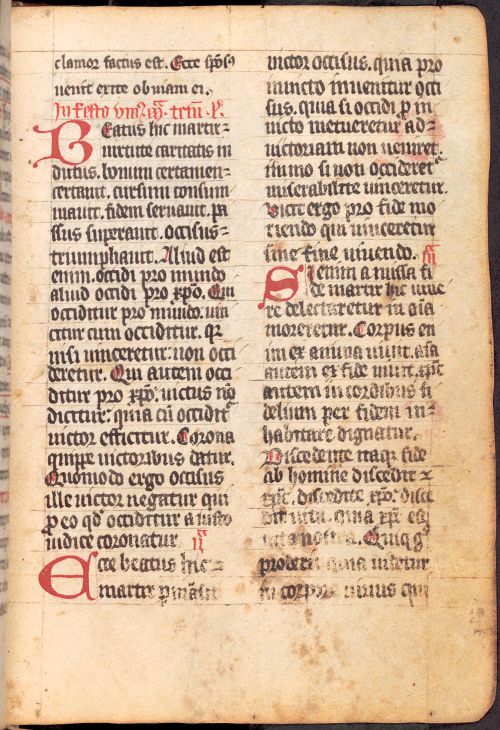 clamor factus est. Ecce spōs
venit exite obviam ei.
In festo
Beatus hic martir
virtute caritatis in
dutus. bonum certamen
certavit. cursum consum
mavit. fidem servavit. pa
ssus superavit. occisus
triumphavit. Aliud est
enim occidi pro mundo
aliud occidi pro xp̄o. Cū
occiditur pro mundo. vin
citur cum occiditur. qr̄
nisi vinceretur. non occi
deretur. Qui autem occi
ditur pro xp̄o. victus nō
dicitur. quia cū occiditr̄
victor efficitur. Corona
quippe victoribus datur.
Quomodo ergo occisus
ille victor negatur qui
p̲ eo qd̄ occiditur a iusto
iudice coronatur
Ecce beatus hic
martir
victor occisus. quia pro
invicto invenitur occi
sus. quia si occidi p̲ in
victo metueretur ad
victoriam non veniret.
immo si non occideretr̄
miserabilite vinceretur.
Vicit ergo pro fide mo
riendo qui vinceretur
sine fine vivendo. iiiᵃ
Si enim a missa fi
de martir hic vive
re delectaretur in aīa
moreretur. Corpus en
im ex anima vivit. aīa
autem ex fide vivit. xp̄c
autem in cordibus fi
delium per fidem in
habitare dignatur.
Discedente itaqꝫ fide
ab homine discedit ⁊
xp̄c. discedite xp̄o. disce
dit vita. quia xp̄c est
vita nostra. Quisqꝫ g̊
proteris quia videtur
in corpore vivus qui